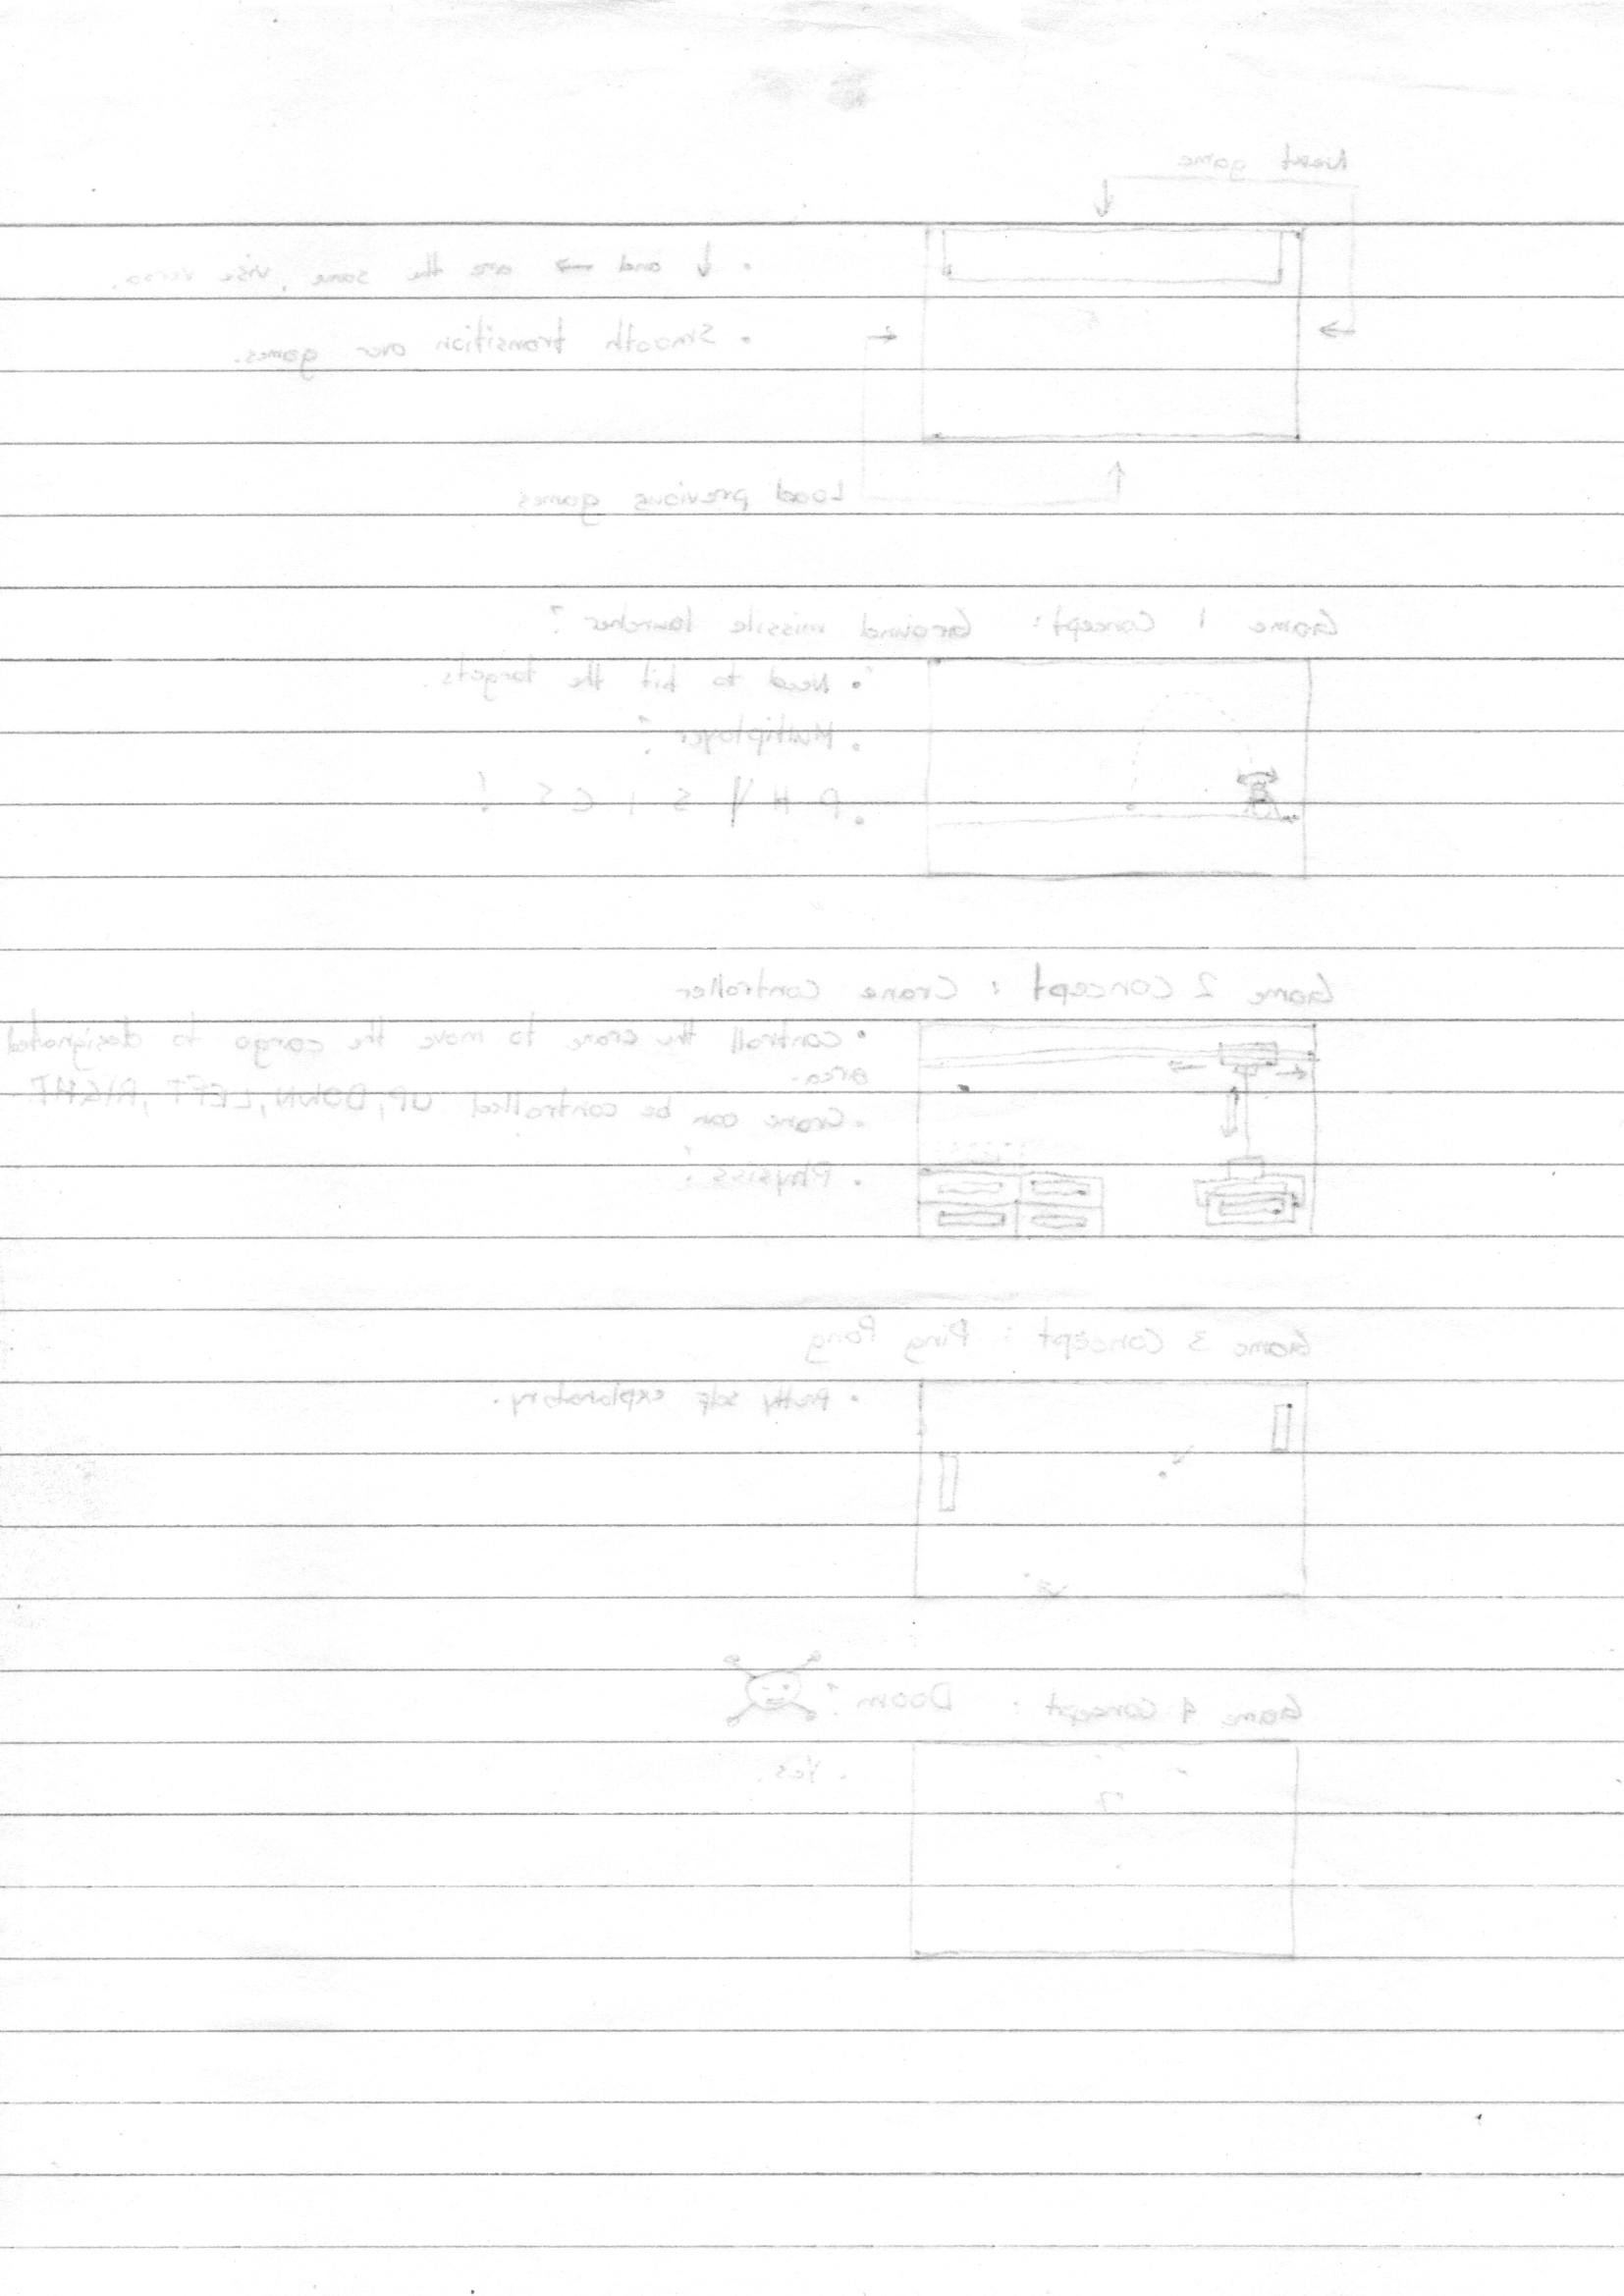 Next game
• ↓ and → are the same, vise versa.
• Smooth transition over games.
Load previous games
Game 1 Concept: Ground missile launcher?
• Need to hit the targets.
• Multiplayer?
• PHYSICS!
Game 2 Concept: Crane Controller
• Controll the crane to move the cargo to designated
area.
• Crane can be controlled UP, DOWN, LEFT, RIGHT.
• Physiss?
Game 3 Concept: Ping Pong
• Pretty self explanatory.
Game 4 Concept: Doom?
• Yes.